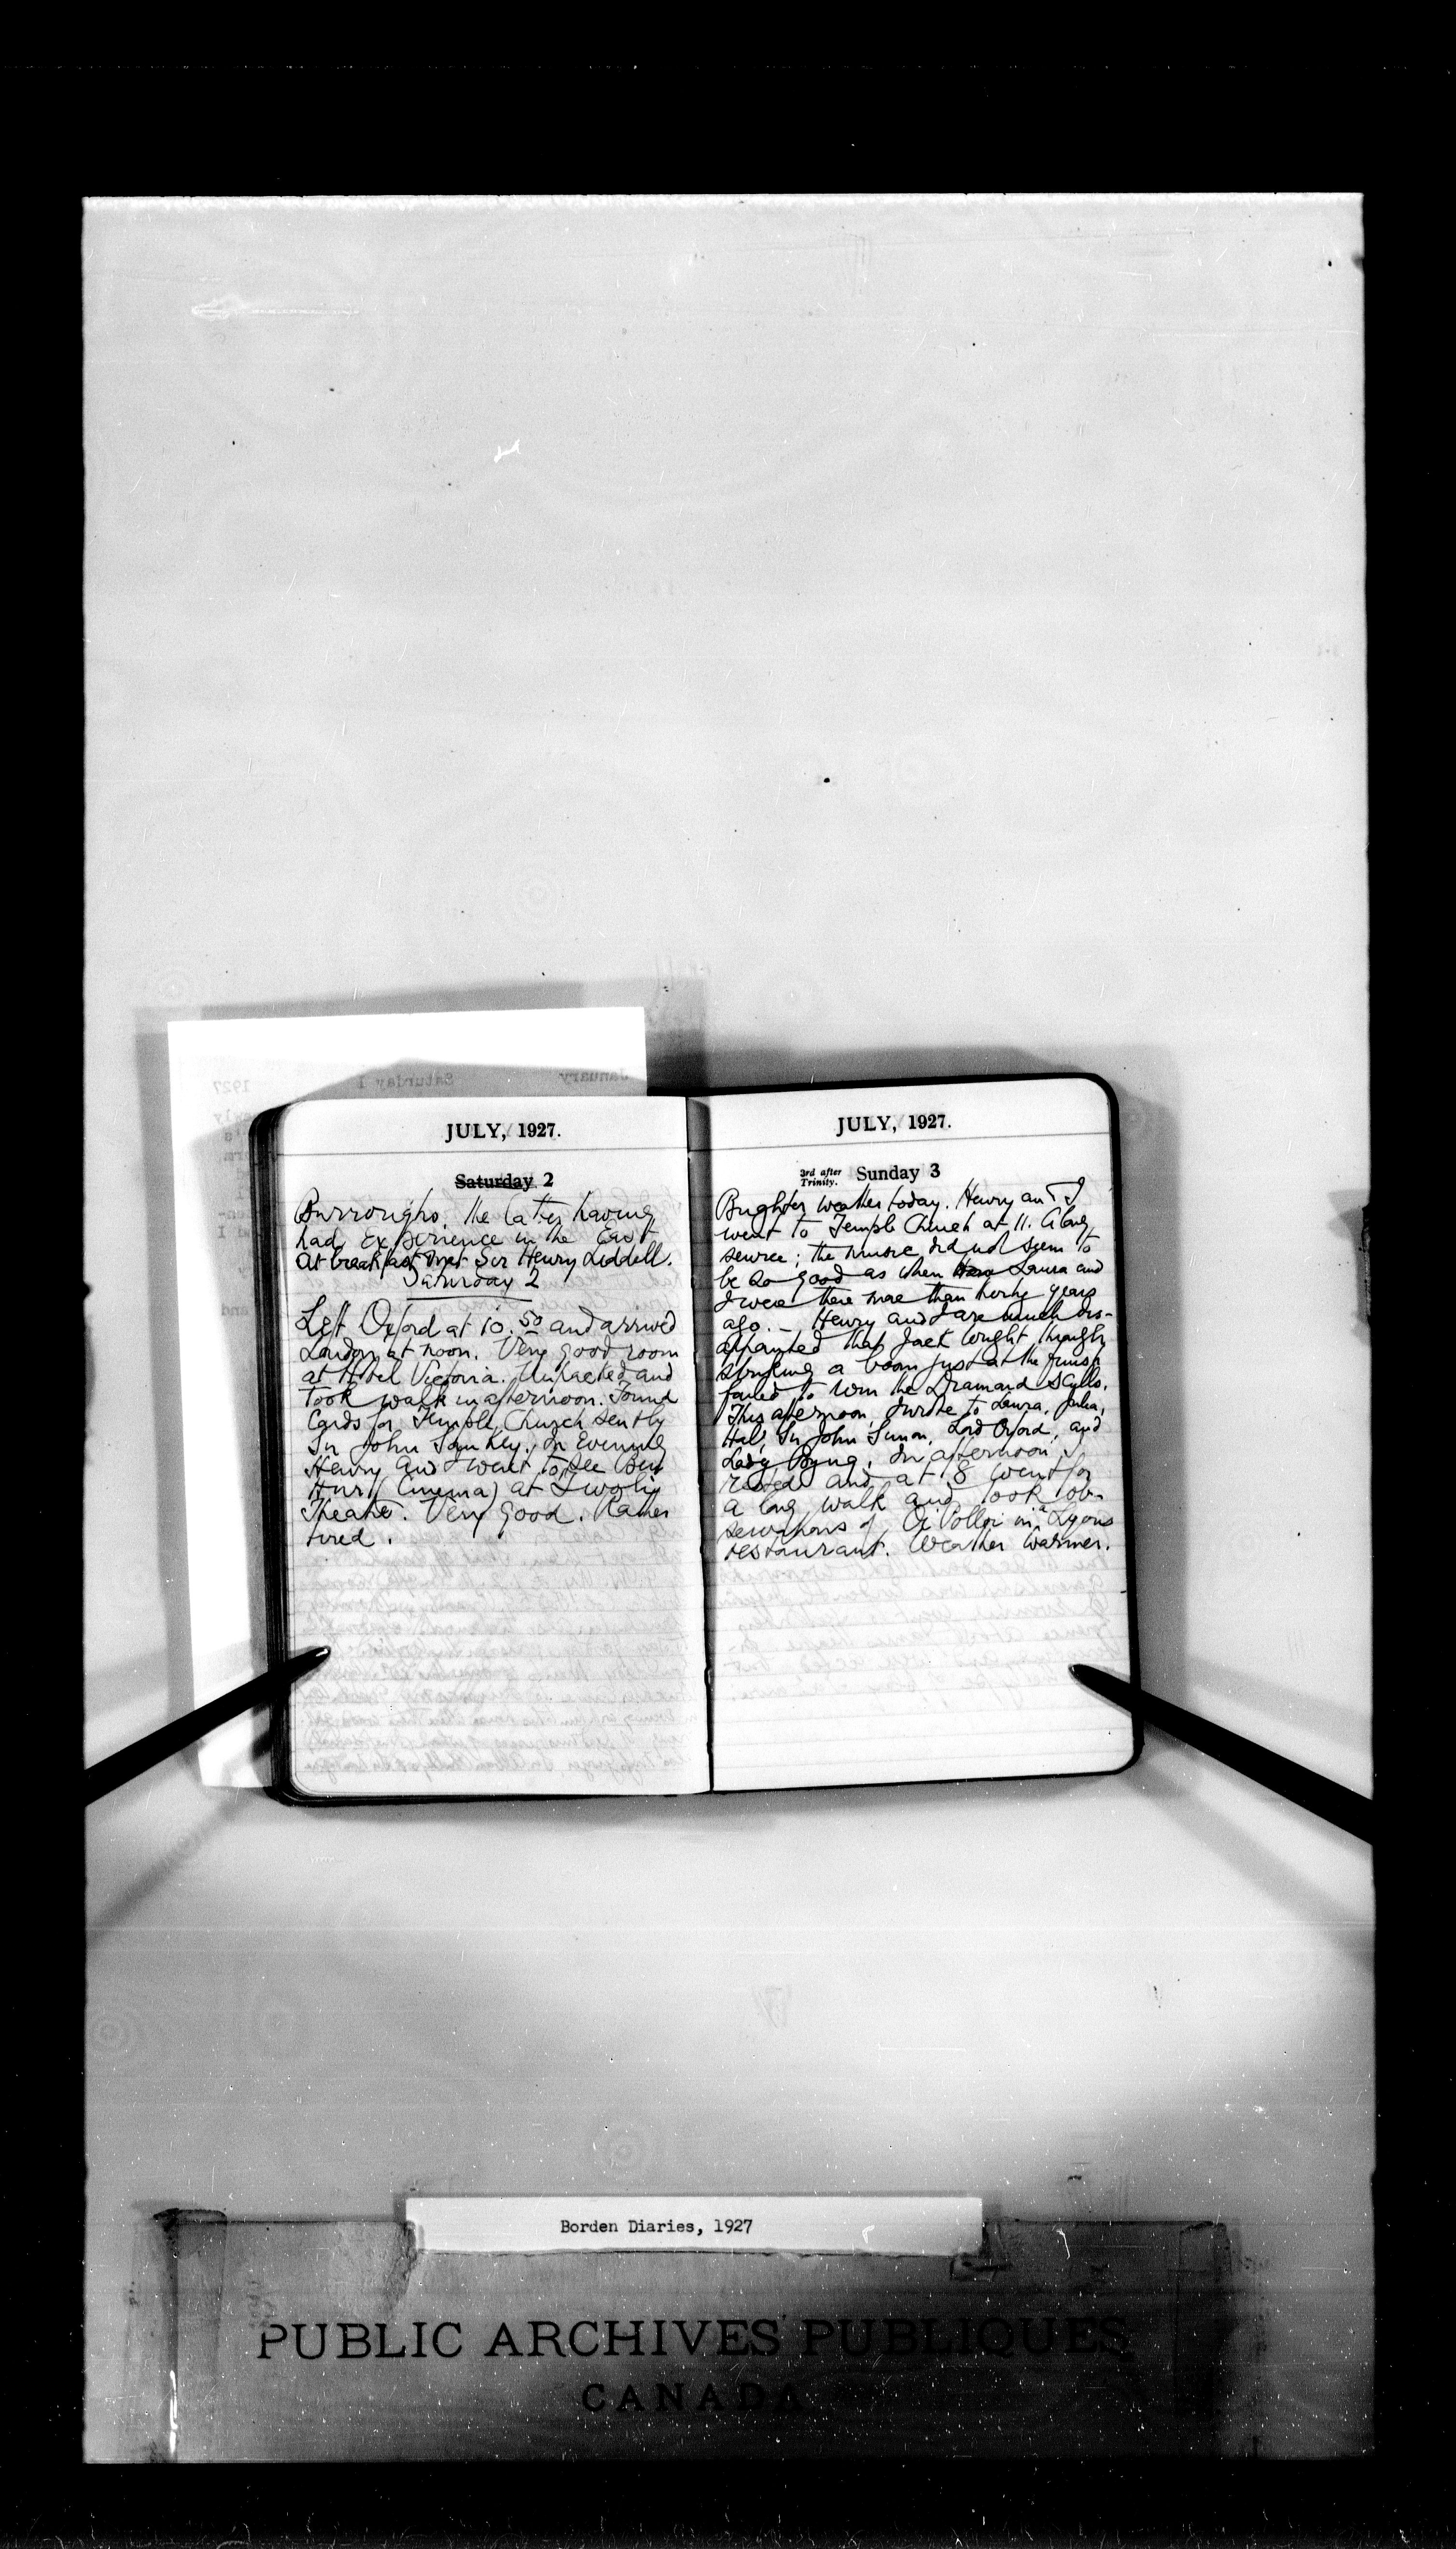 JULY, 1927.
Saturday 2
Burroughs, the latter having
had experience in the East.
At breakfast met Sir Henry Liddell.
Saturday 2
Left Oxford at 10.50 and arrived
London at noon. Very good room
at Hotel Victoria. Unpacked and
took walk in afternoon. Found
Cards for Temple Church sent by
Sir John Sankey. In Evening
Henry and I went to see Ben
Hur (Cinema) at Tivoli
Theatre. Very good. Rather
tired.
JULY, 1927.
3rd after Trinity. Sunday 3
Brighter weather today. Henry and I
went to Temple Church at 11. A long
service; the music did not seem to
be so good as when Laura and
I were there more than thirty years
ago. – Henry and I are much dis-
appointed that Jack Wright through
striking a boom just at the finish
failed to win the Diamond Sculls.
This afternoon I wrote to Laura, Julia,
Hal, Sir John Simon, Lord Oxford, and
Lady Byng. In afternoon I
rested and at 8 went for
a long walk and took ob-
servations of Oi Polloi in a Lyons
restaurant. Weather warmer.
January Saturday 1 1927
Borden Diaries, 1927
PUBLIC ARCHIVES PUBLIQUES
CANADA